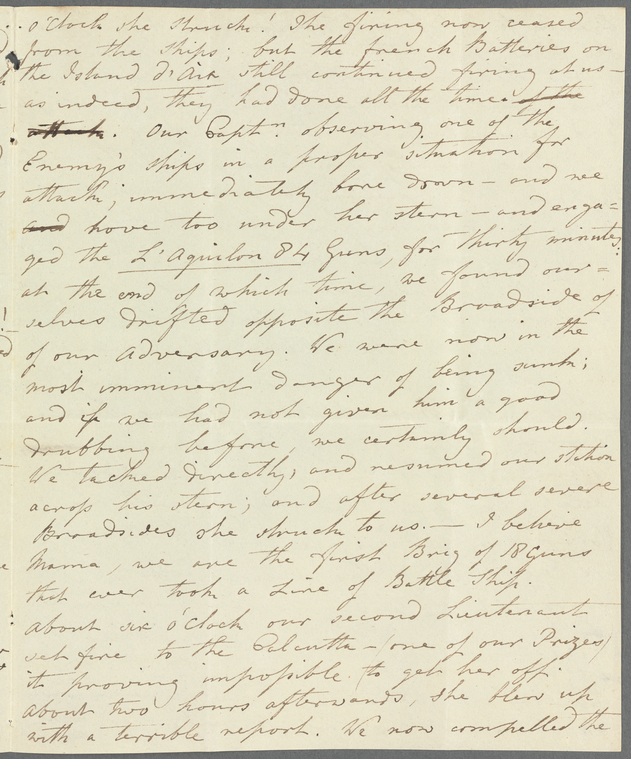 o'Clock she struck! The firing now ceased
from the ships; but the french Batteries on
the Island d'Aix still continued firing at us—
as indeed, they had done all the time of the
attack. Our Captn. observing one of the
Enemy's ships in a proper situation for
attack, immediately bore down — and we
and hove too under her stern — and enga=
ged the L'Aquilon 84 Guns, for thirty minutes,
at the end of which time, we found our=
selves drifted opposite the Broadside of
of our Adversary. We were now in the
most imminent danger of being sunk;
and if we had not given him a good
drubbing before, we certainly should.
We tacked directly, and resumed our station
across his stern; and after several severe
Broadsides she struck to us. — I believe
Mama, we are the first Brig of 18 Guns
that ever took a Line of Battle Ship.
About six o'Clock our second Lieutenant
set fire to the Calcutta — (one of our Prizes)
it proving impossible to get her off.
about two hours afterwards, she blew up
with a terrible report. We now compelled the